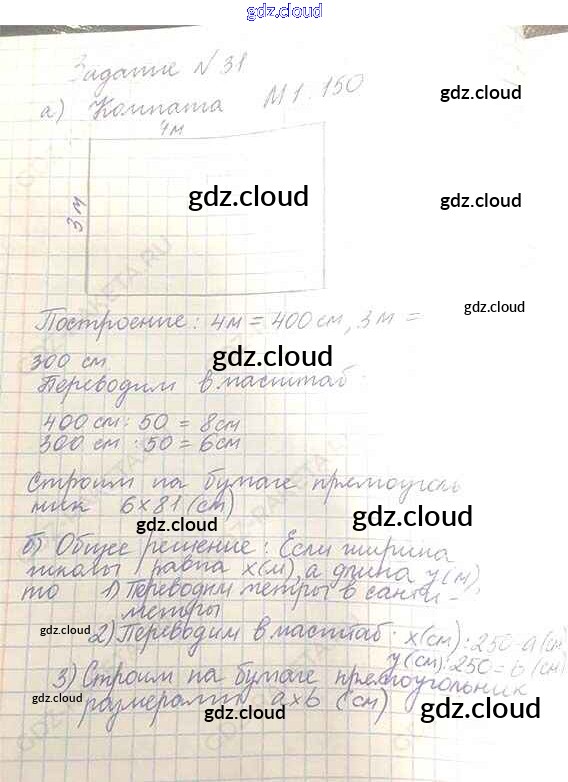 gdz.cloud
Задание №31
gdz.cloud
а) Комната М 1:150
4м
gdz.cloud
gdz.cloud
3м
Построение: 4м = 400 см, 3м =
gdz.cloud
300 см
gdz.cloud
Переводим в масштаб:
400 см : 50 = 8см
300 см : 50 = 6см
gdz.cloud
Строим на бумаге прямоуголь
ник 6x81 (см)
gdz.cloud
gdz.cloud
б) Общее решение: Если ширина
равна х(м), а длина у(м),
то 1) Переводим метры в санти-
метры
gdz.cloud
2) Переводим в масштаб: х(см):250=а(см)
у(см):250=b(см)
3) Строим на бумаге прямоугольник
gdz.cloud
размерами axb (см)
gdz.cloud
gdz.cloud